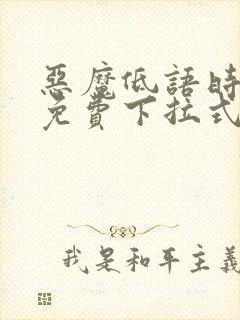 惡魔低語時
免費下拉式
我是和平主義